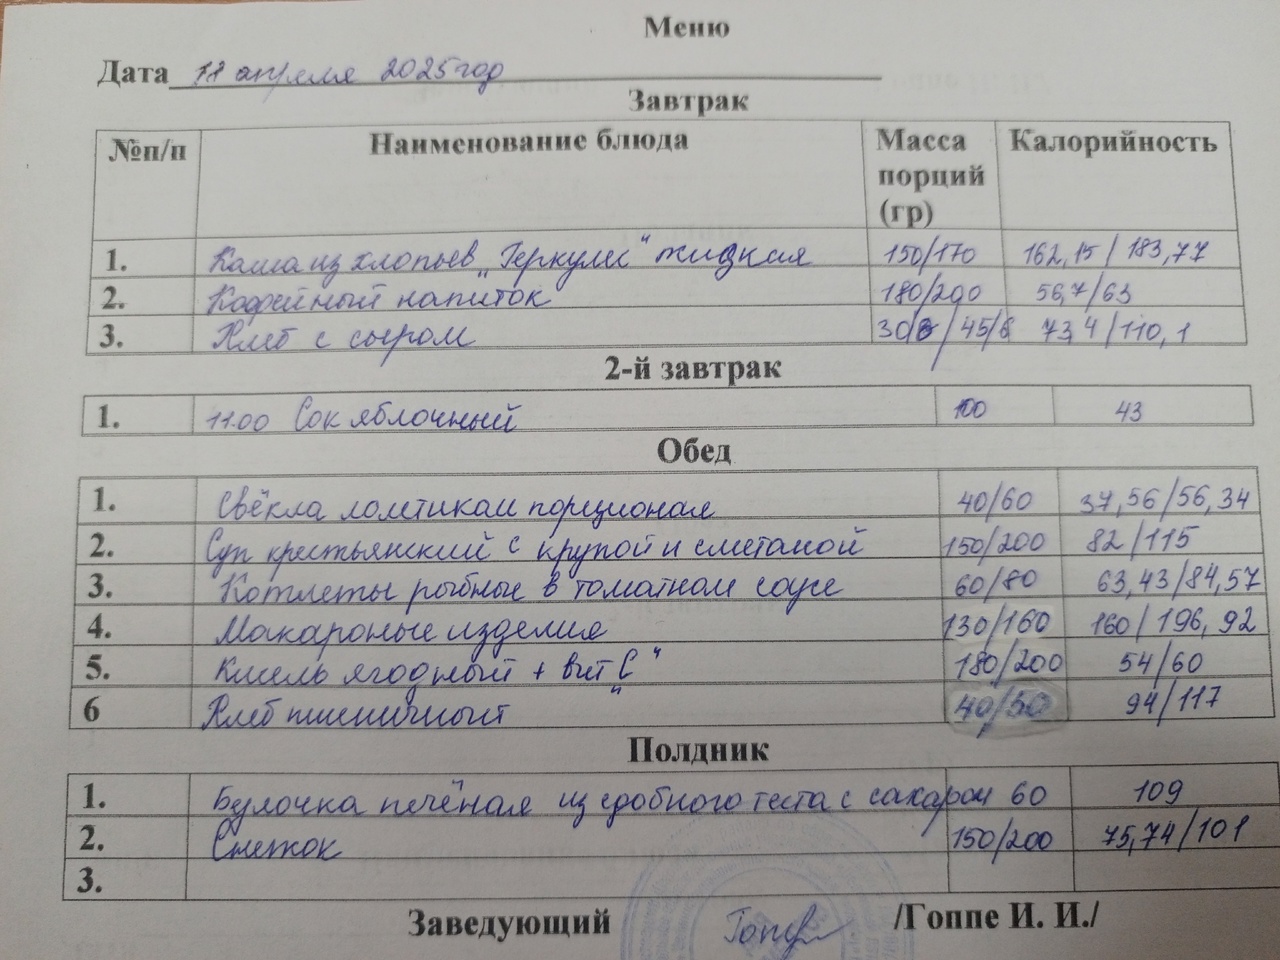 Меню
Дата 11 апреля 2025 год
Завтрак
№п/п Наименование блюда Масса порций (гр) Калорийность
1. Каша из хлопьев „Геркулес“ жидкая 150/170 162,15/183,77
2. Кофейный напиток 180/200 56,7/63
3. Хлеб с сыром 30/6/45/6 73,4/110,1
2-й завтрак
1. 11.00 Сок яблочный 100 43
Обед
1. Свёкла ломтикам порционая 40/60 37,56/56,34
2. Суп крестьянский с крупой и сметаной 150/200 82/115
3. Котлеты рыбные в томатном соусе 60/80 63,43/84,57
4. Макароные изделия 130/160 160/196,92
5. Кисель ягодный + вит „С“ 180/200 54/60
6 Хлеб пшеничный 40/50 94/117
Полдник
1. Булочка печёная из сдобного теста с сахаром 60 109
2. Снежок 150/200 75,74/101
3.
Заведующий /Гоппе И. И./